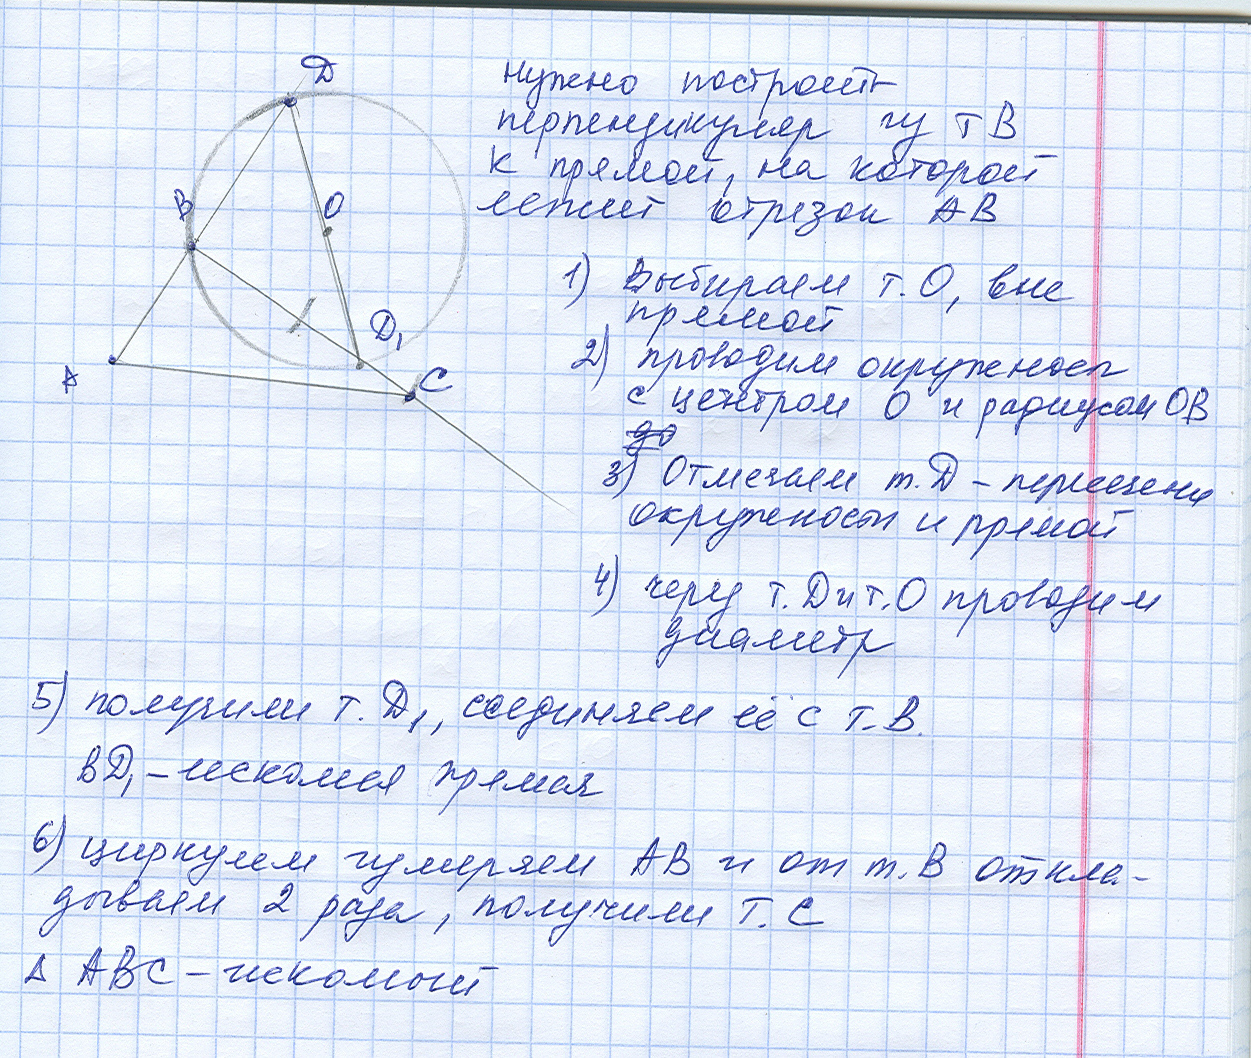 D
B
O
D₁
A
C
нужно построить
перпендикуляр из т В
к прямой, на которой
лежит отрезок АВ
1) Выбираем т.О, вне
прямой
2) проводим окружност
с центром О и радиусом ОВ
до
3) Отмечаем т.D - пересечени
окружности и прямой
4) через т.D и т.О проводим
диаметр
5) получили т.D₁, соединяем её с т.В.
BD₁ - искомая прямая
6) циркулем измеряем АВ и от т.В откла-
дываем 2 раза, получили т.С
Δ АВС - искомый